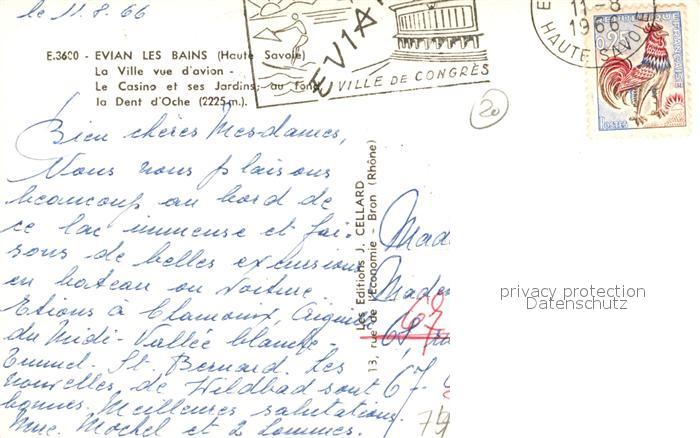 le 11.8.66
E.3600 - EVIAN LES BAINS (Haute Savoie)
La Ville vue d'avion -
Le Casino et ses Jardins; au fond,
la Dent d'Oche (2225 m.).
EVIAN
VILLE DE CONGRÈS
11-8
1966
HAUTE SAVOIE
0,25
REPUBLIQUE FRANÇAISE
POSTES
20
Bien chères Mesdames,
Nous nous plaisons
beaucoup au bord de
ce lac immense et fai-
sons de belles excursions
en bateau ou voiture.
Etions à Chamonix, Aiguille
du Midi - Vallée blanche -
Tunnel. St. Bernard. Les
nouvelles de Wildbad sont
bonnes. Meilleures salutations.
Mme. Mochel et 2 hommes.
Les Editions J. CELLARD
13, rue de l'Economie - Bron (Rhône)
Mad
Madem
67
67-
privacy protection
Datenschutz